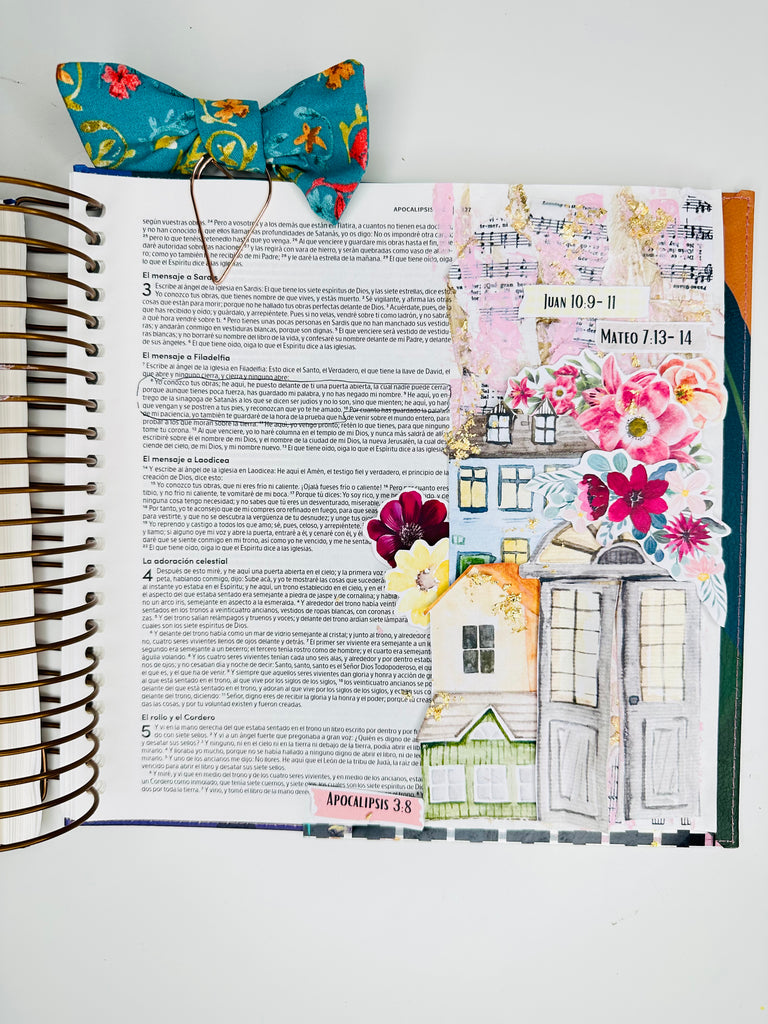 APOCALIPSIS
según vuestras obras. 24 Pero a vosotros y a los demás que están en Tiatira, a cuantos no tienen esa
y no han conocido lo que ellos llaman las profundidades de Satanás, yo os digo: No os impondré otra
25 pero lo que tenéis, retenedlo hasta que yo venga. 26 Al que venciere y guardare mis obras hasta el fin,
daré autoridad sobre las naciones, 27 y las regirá con vara de hierro, y serán quebradas como vaso de
como yo también la he recibido de mi Padre; 28 y le daré la estrella de la mañana. 29 El que tiene oído, oiga
lo que el Espíritu dice a las iglesias.
El mensaje a Sardis
3 Escribe al ángel de la iglesia en Sardis: El que tiene los siete espíritus de Dios, y las siete estrellas, dice esto:
Yo conozco tus obras, que tienes nombre de que vives, y estás muerto. 2 Sé vigilante, y afirma las otras
cosas que están para morir; porque no he hallado tus obras perfectas delante de Dios. 3 Acuérdate, pues, de lo
que has recibido y oído; y guárdalo, y arrepiéntete. Pues si no velas, vendré sobre ti como ladrón, y no sabrás
a qué hora vendré sobre ti. 4 Pero tienes unas pocas personas en Sardis que no han manchado sus vestiduras;
y andarán conmigo en vestiduras blancas, porque son dignas. 5 El que venciere será vestido de vestiduras
blancas; y no borraré su nombre del libro de la vida, y confesaré su nombre delante de mi Padre, y delante
de sus ángeles. 6 El que tiene oído, oiga lo que el Espíritu dice a las iglesias.
El mensaje a Filadelfia
7 Escribe al ángel de la iglesia en Filadelfia: Esto dice el Santo, el Verdadero, el que tiene la llave de David, el
que abre y ninguno cierra, y cierra y ninguno abre:
8 Yo conozco tus obras; he aquí, he puesto delante de ti una puerta abierta, la cual nadie puede cerrar;
porque aunque tienes poca fuerza, has guardado mi palabra, y no has negado mi nombre. 9 He aquí, yo
de la sinagoga de Satanás a los que se dicen ser judíos y no lo son, sino que mienten; he aquí, yo haré
que vengan y se postren a tus pies, y reconozcan que yo te he amado. 10 Por cuanto has guardado la palabra
de mi paciencia, yo también te guardaré de la hora de la prueba que ha de venir sobre el mundo entero, para
probar a los que moran sobre la tierra. 11 He aquí, yo vengo pronto; retén lo que tienes, para que ninguno
tome tu corona. 12 Al que venciere, yo lo haré columna en el templo de mi Dios, y nunca más saldrá de allí;
escribiré sobre él el nombre de mi Dios, y el nombre de la ciudad de mi Dios, la nueva Jerusalén, la cual
del cielo, de mi Dios, y mi nombre nuevo. 13 El que tiene oído, oiga lo que el Espíritu dice a las iglesias.
El mensaje a Laodicea
14 Y escribe al ángel de la iglesia en Laodicea: He aquí el Amén, el testigo fiel y verdadero, el principio de la
creación de Dios, dice esto:
15 Yo conozco tus obras, que ni eres frío ni caliente. ¡Ojalá fueses frío o caliente! 16 Pero por cuanto eres
tibio, y no frío ni caliente, te vomitaré de mi boca. 17 Porque tú dices: Yo soy rico, y me he
ninguna cosa tengo necesidad; y no sabes que tú eres un desventurado, miserable,
18 Por tanto, yo te aconsejo que de mí compres oro refinado en fuego, para que seas
para vestirte, y que no se descubra la vergüenza de tu desnudez; y unge tus
19 Yo reprendo y castigo a todos los que amo; sé, pues, celoso, y arrepiéntete.
y llamo; si alguno oye mi voz y abre la puerta, entraré a él, y cenaré con él, y él
daré que se siente conmigo en mi trono, así como yo he vencido, y me he
22 El que tiene oído, oiga lo que el Espíritu dice a las iglesias.
La adoración celestial
4 Después de esto miré, y he aquí una puerta abierta en el cielo; y la primera voz
peta, hablando conmigo, dijo: Sube acá, y yo te mostraré las cosas que sucederán
al instante yo estaba en el Espíritu; y he aquí, un trono establecido en el cielo, y en el
el aspecto del que estaba sentado era semejante a piedra de jaspe y de cornalina; y había
un arco iris, semejante en aspecto a la esmeralda. 4 Y alrededor del trono había
sentados en los tronos a veinticuatro ancianos, vestidos de ropas blancas, con
5 Y del trono salían relámpagos y truenos y voces; y delante del trono ardían siete
cuales son los siete espíritus de Dios.
6 Y delante del trono había como un mar de vidrio semejante al cristal; y junto al trono, y alrededor
no, cuatro seres vivientes llenos de ojos delante y detrás. 7 El primer ser viviente era semejante a un
segundo era semejante a un becerro; el tercero tenía rostro como de hombre; y el cuarto era semejante
volando. 8 Y los cuatro seres vivientes tenían cada uno seis alas, y alrededor y por dentro
nos de ojos; y no cesaban día y noche de decir: Santo, santo, santo es el Señor Dios Todopoderoso, el que
el que es, y el que ha de venir. 9 Y siempre que aquellos seres vivientes dan gloria y honra y acción de
al que está sentado en el trono, al que vive por los siglos de los siglos, 10 los veinticuatro ancianos se
delante del que está sentado en el trono, y adoran al que vive por los siglos de los siglos, y
delante del trono, diciendo: 11 Señor, digno eres de recibir la gloria y la honra y el poder; porque tú
das las cosas, y por tu voluntad existen y fueron creadas.
El rollo y el Cordero
5 Y vi en la mano derecha del que estaba sentado en el trono un libro escrito por dentro y por
do con siete sellos. 2 Y vi a un ángel fuerte que pregonaba a gran voz: ¿Quién es digno de
y desatar sus sellos? 3 Y ninguno, ni en el cielo ni en la tierra ni debajo de la tierra, podía abrir el
mirarlo. 4 Y lloraba yo mucho, porque no se había hallado a ninguno digno de abrir el libro, ni de
mirarlo. 5 Y uno de los ancianos me dijo: No llores. He aquí que el León de la tribu de Judá, la raíz
vencido para abrir el libro y desatar sus siete sellos.
6 Y miré, y vi que en medio del trono y de los cuatro seres vivientes, y en medio de los ancianos,
un Cordero como inmolado, que tenía siete cuernos, y siete ojos, los cuales son los siete espíritus de Dios
dos por toda la tierra. 7 Y vino, y tomó el libro de la mano
Juan 10:9- 11
Mateo 7:13- 14
Apocalipsis 3:8